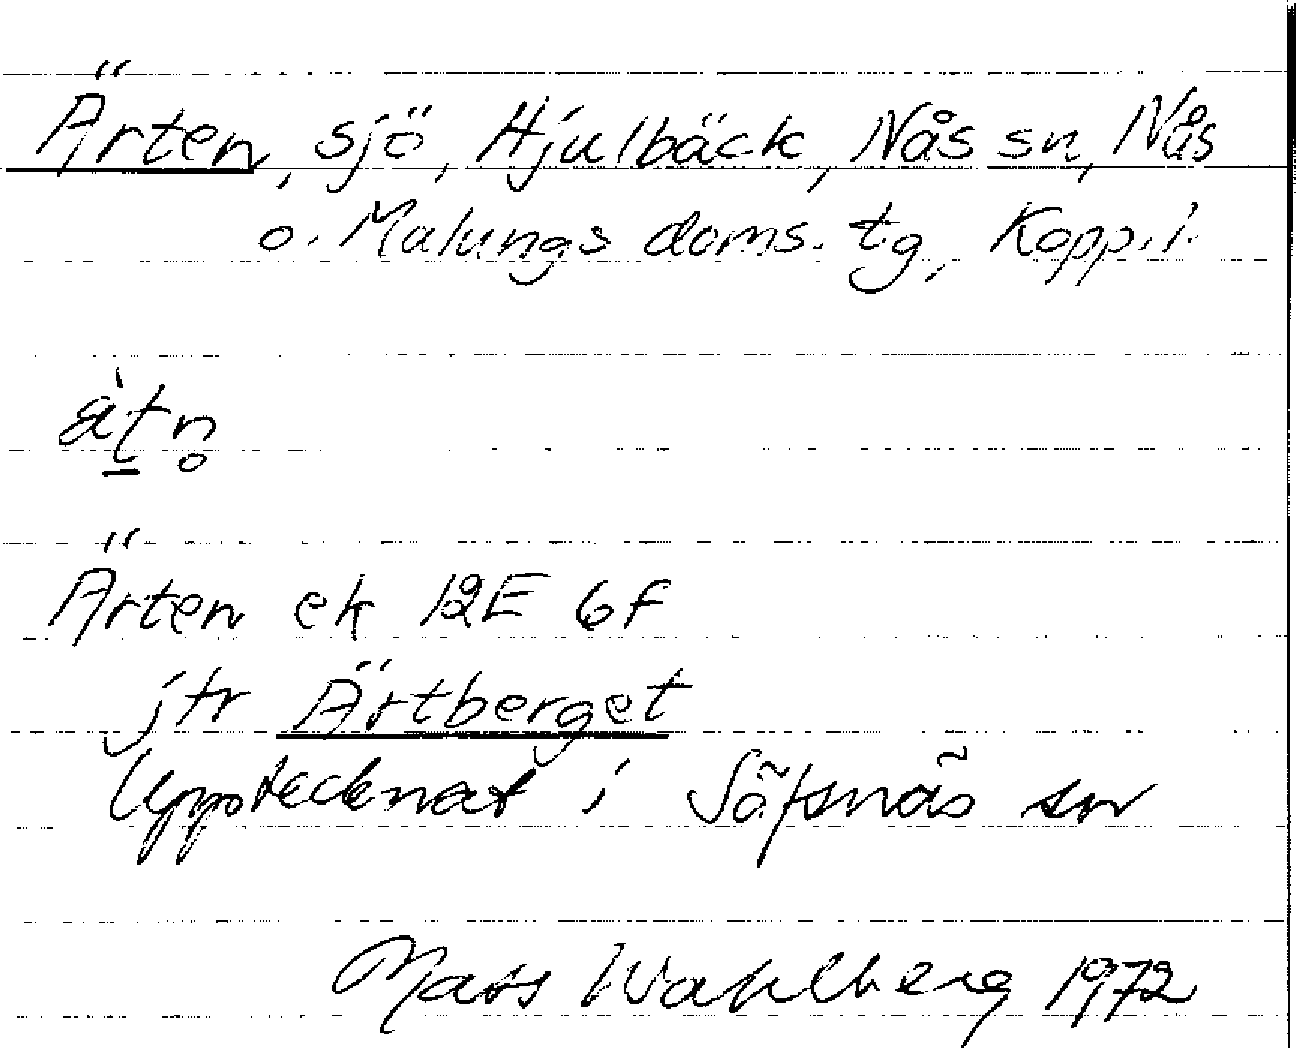 Ärten, sjö, Hjulbäck, Nås sn, Nås
o. Malungs doms. tg, Kopp. l.
ätn
Ärten ek 12E 6f
jtr Ärtberget
Upptecknat i Säfsnäs sn
Mats Wahlberg 1972